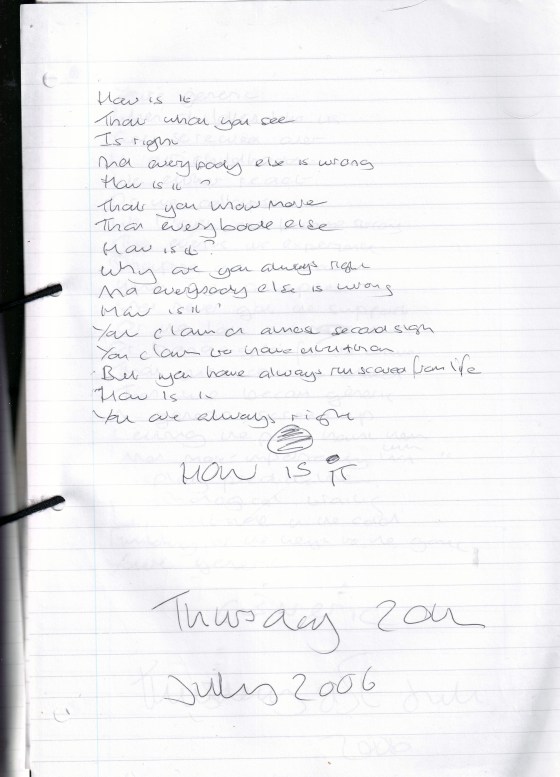 How is it
That what you see
Is right
And everybody else is wrong
How is it ?
That you know more
Than everybode else
How is it?
Why are you always right
And everybody else is wrong
How is it ?
You claim a second sign
You claim to have
But you have always run scared from life
How is it
You are always right
HOW IS IT
Thursday 20th
July 2006